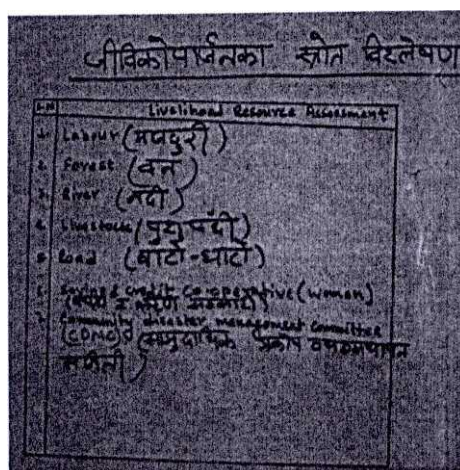 जीविकोपार्जनका स्रोत विश्लेषण
S.N Livelihood Resource Assessment
1. Labour (मजदुरी)
2. Forest (वन)
3. River (नदी)
4. Livestock (पशु पंक्षी)
5. Road (बाटो-घाटो)
6. Saving & credit Co-operative (women)
(बचत तथा ऋण सहकारी)
7. Community disaster management committee
(CDMC) (समुदायिक प्रकोप व्यवस्थापन
समिती)